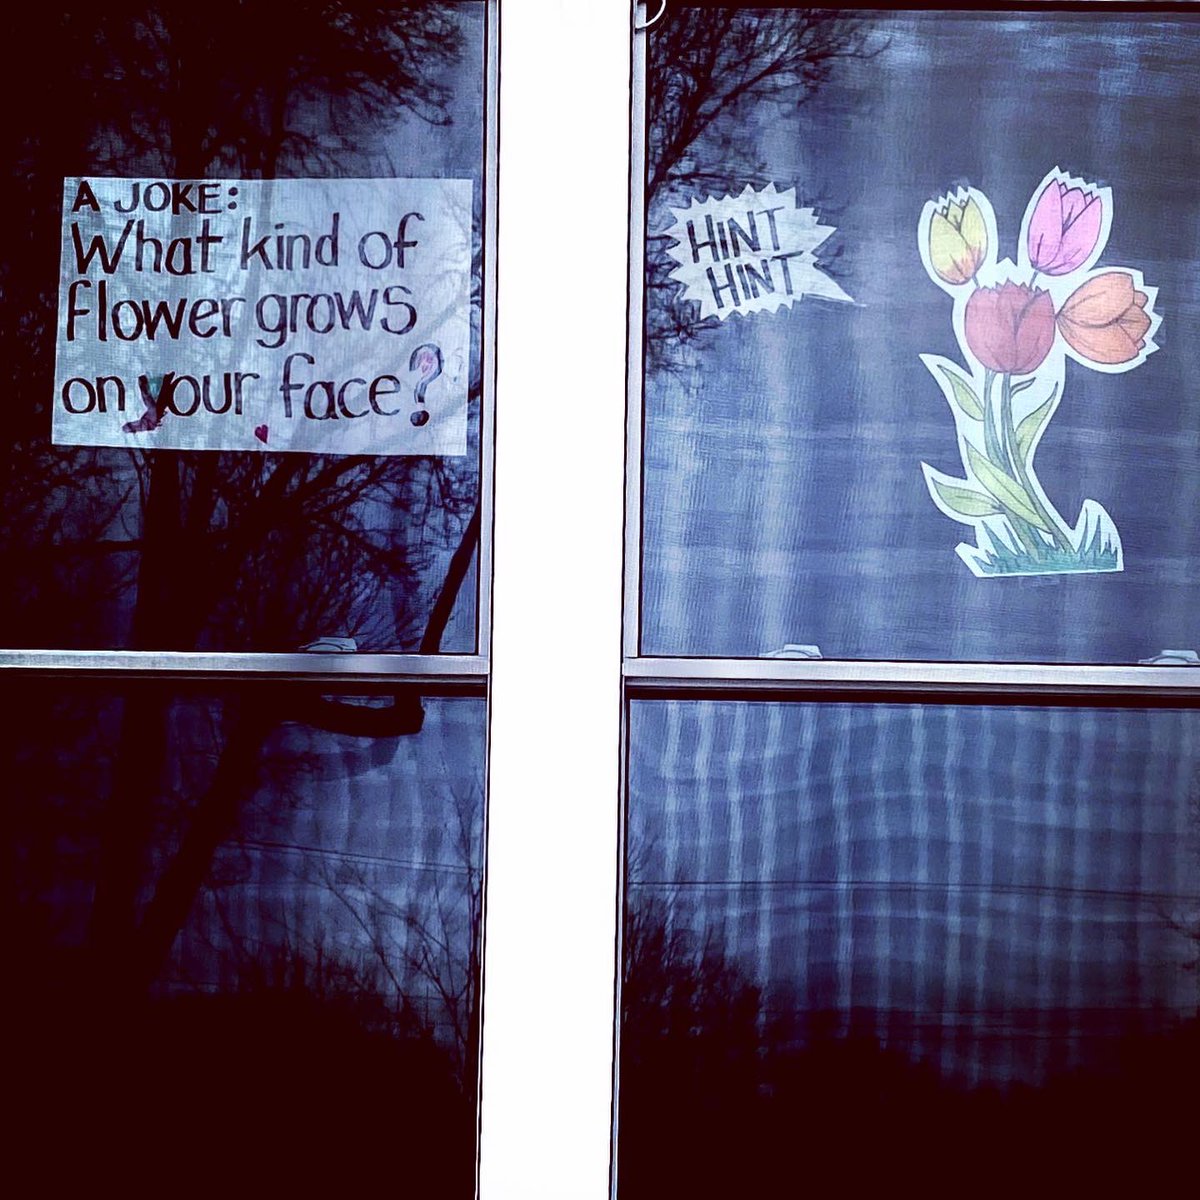 A JOKE:
What kind of
flower grows
on your face?
HINT
HINT